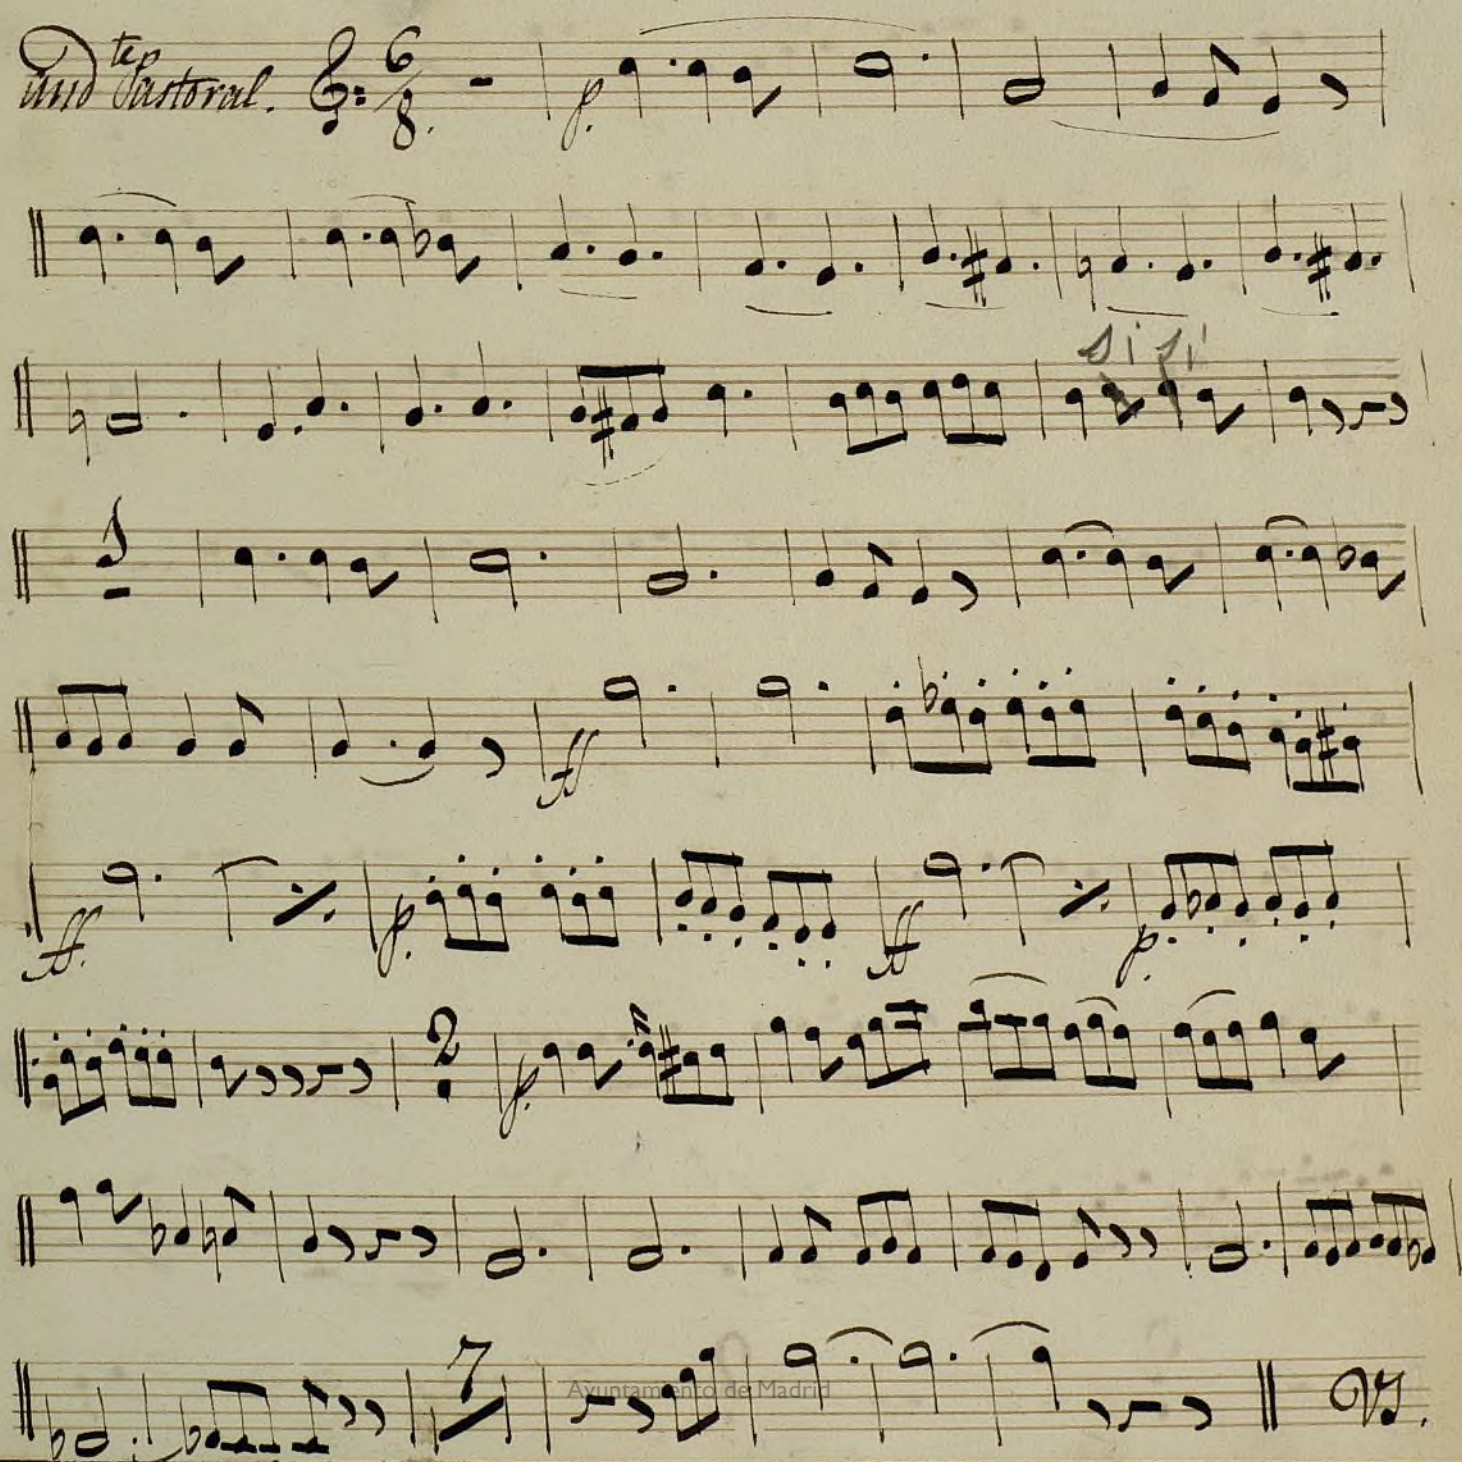 And.te Pastoral. 6/8
p.
si si
ff
ff p. ff p.
2 p.
7
Ayuntamiento de Madrid
VS.